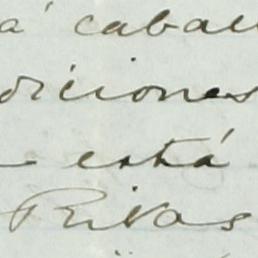 á caball
diciones
está
Rivas